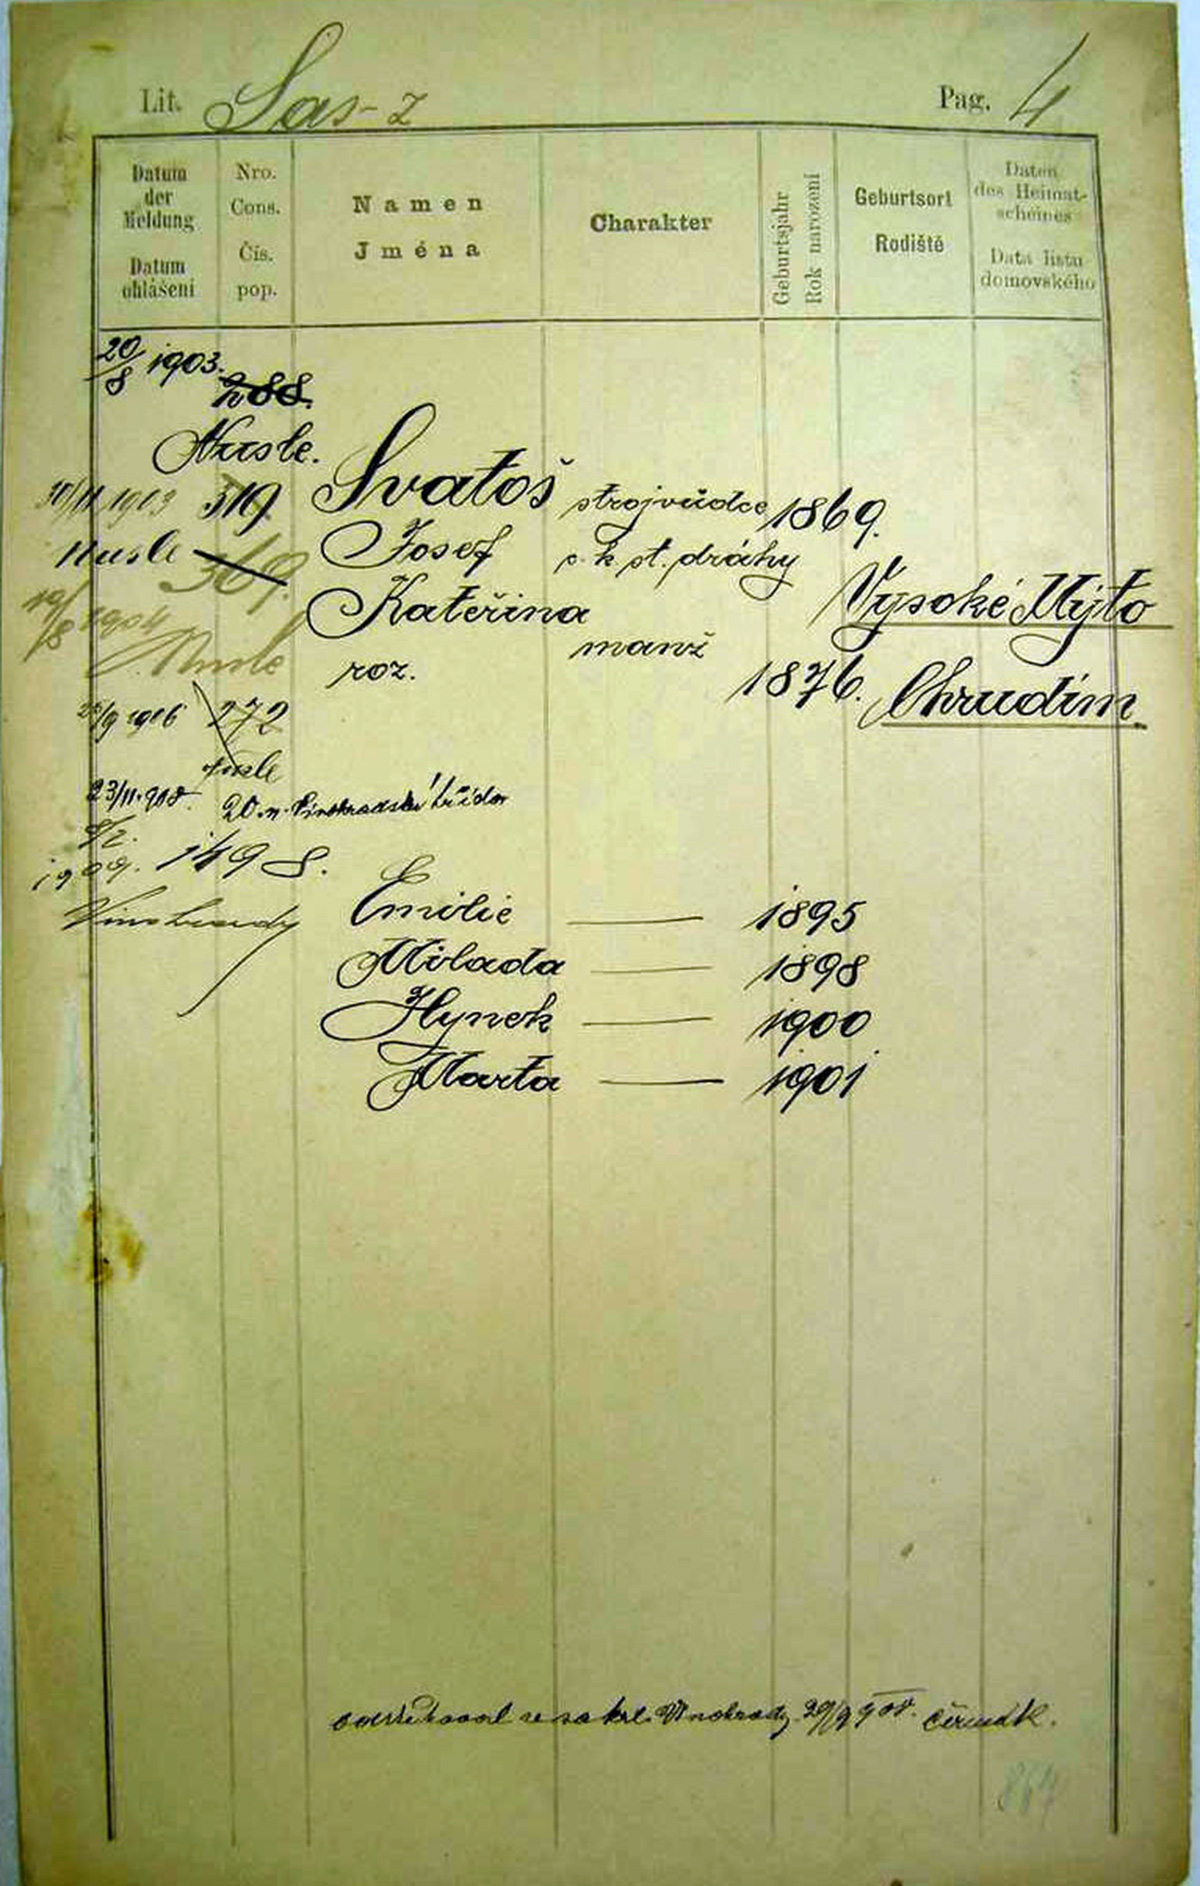 Lit. Sas-z Pag. 4
Datum der Meldung
Datum ohlášení
Nro. Cons.
Čís. pop.
Namen
Jména
Charakter
Geburtsjahr
Rok narození
Geburtsort
Rodiště
Daten des Heimatscheines
Data listu domovského
20/8 1903. 288.
Nusle.
1903 319 Svatoš strojvůdce 1869.
Nusle 369. Josef c. k. st. dráhy Vysoké Mýto
19/8 1904 Kateřina manž 1876. Chrudim
Nusle roz.
/9 1906 272
Nusle
23/11. 908. 20. n. Vinohradská třída
1909. 1498.
Vinohrady
Emilie — 1895
Milada — 1898
Hynek — 1900
Marta — 1901
se na král. Vinohrady 29/9 908. Čermák.
864